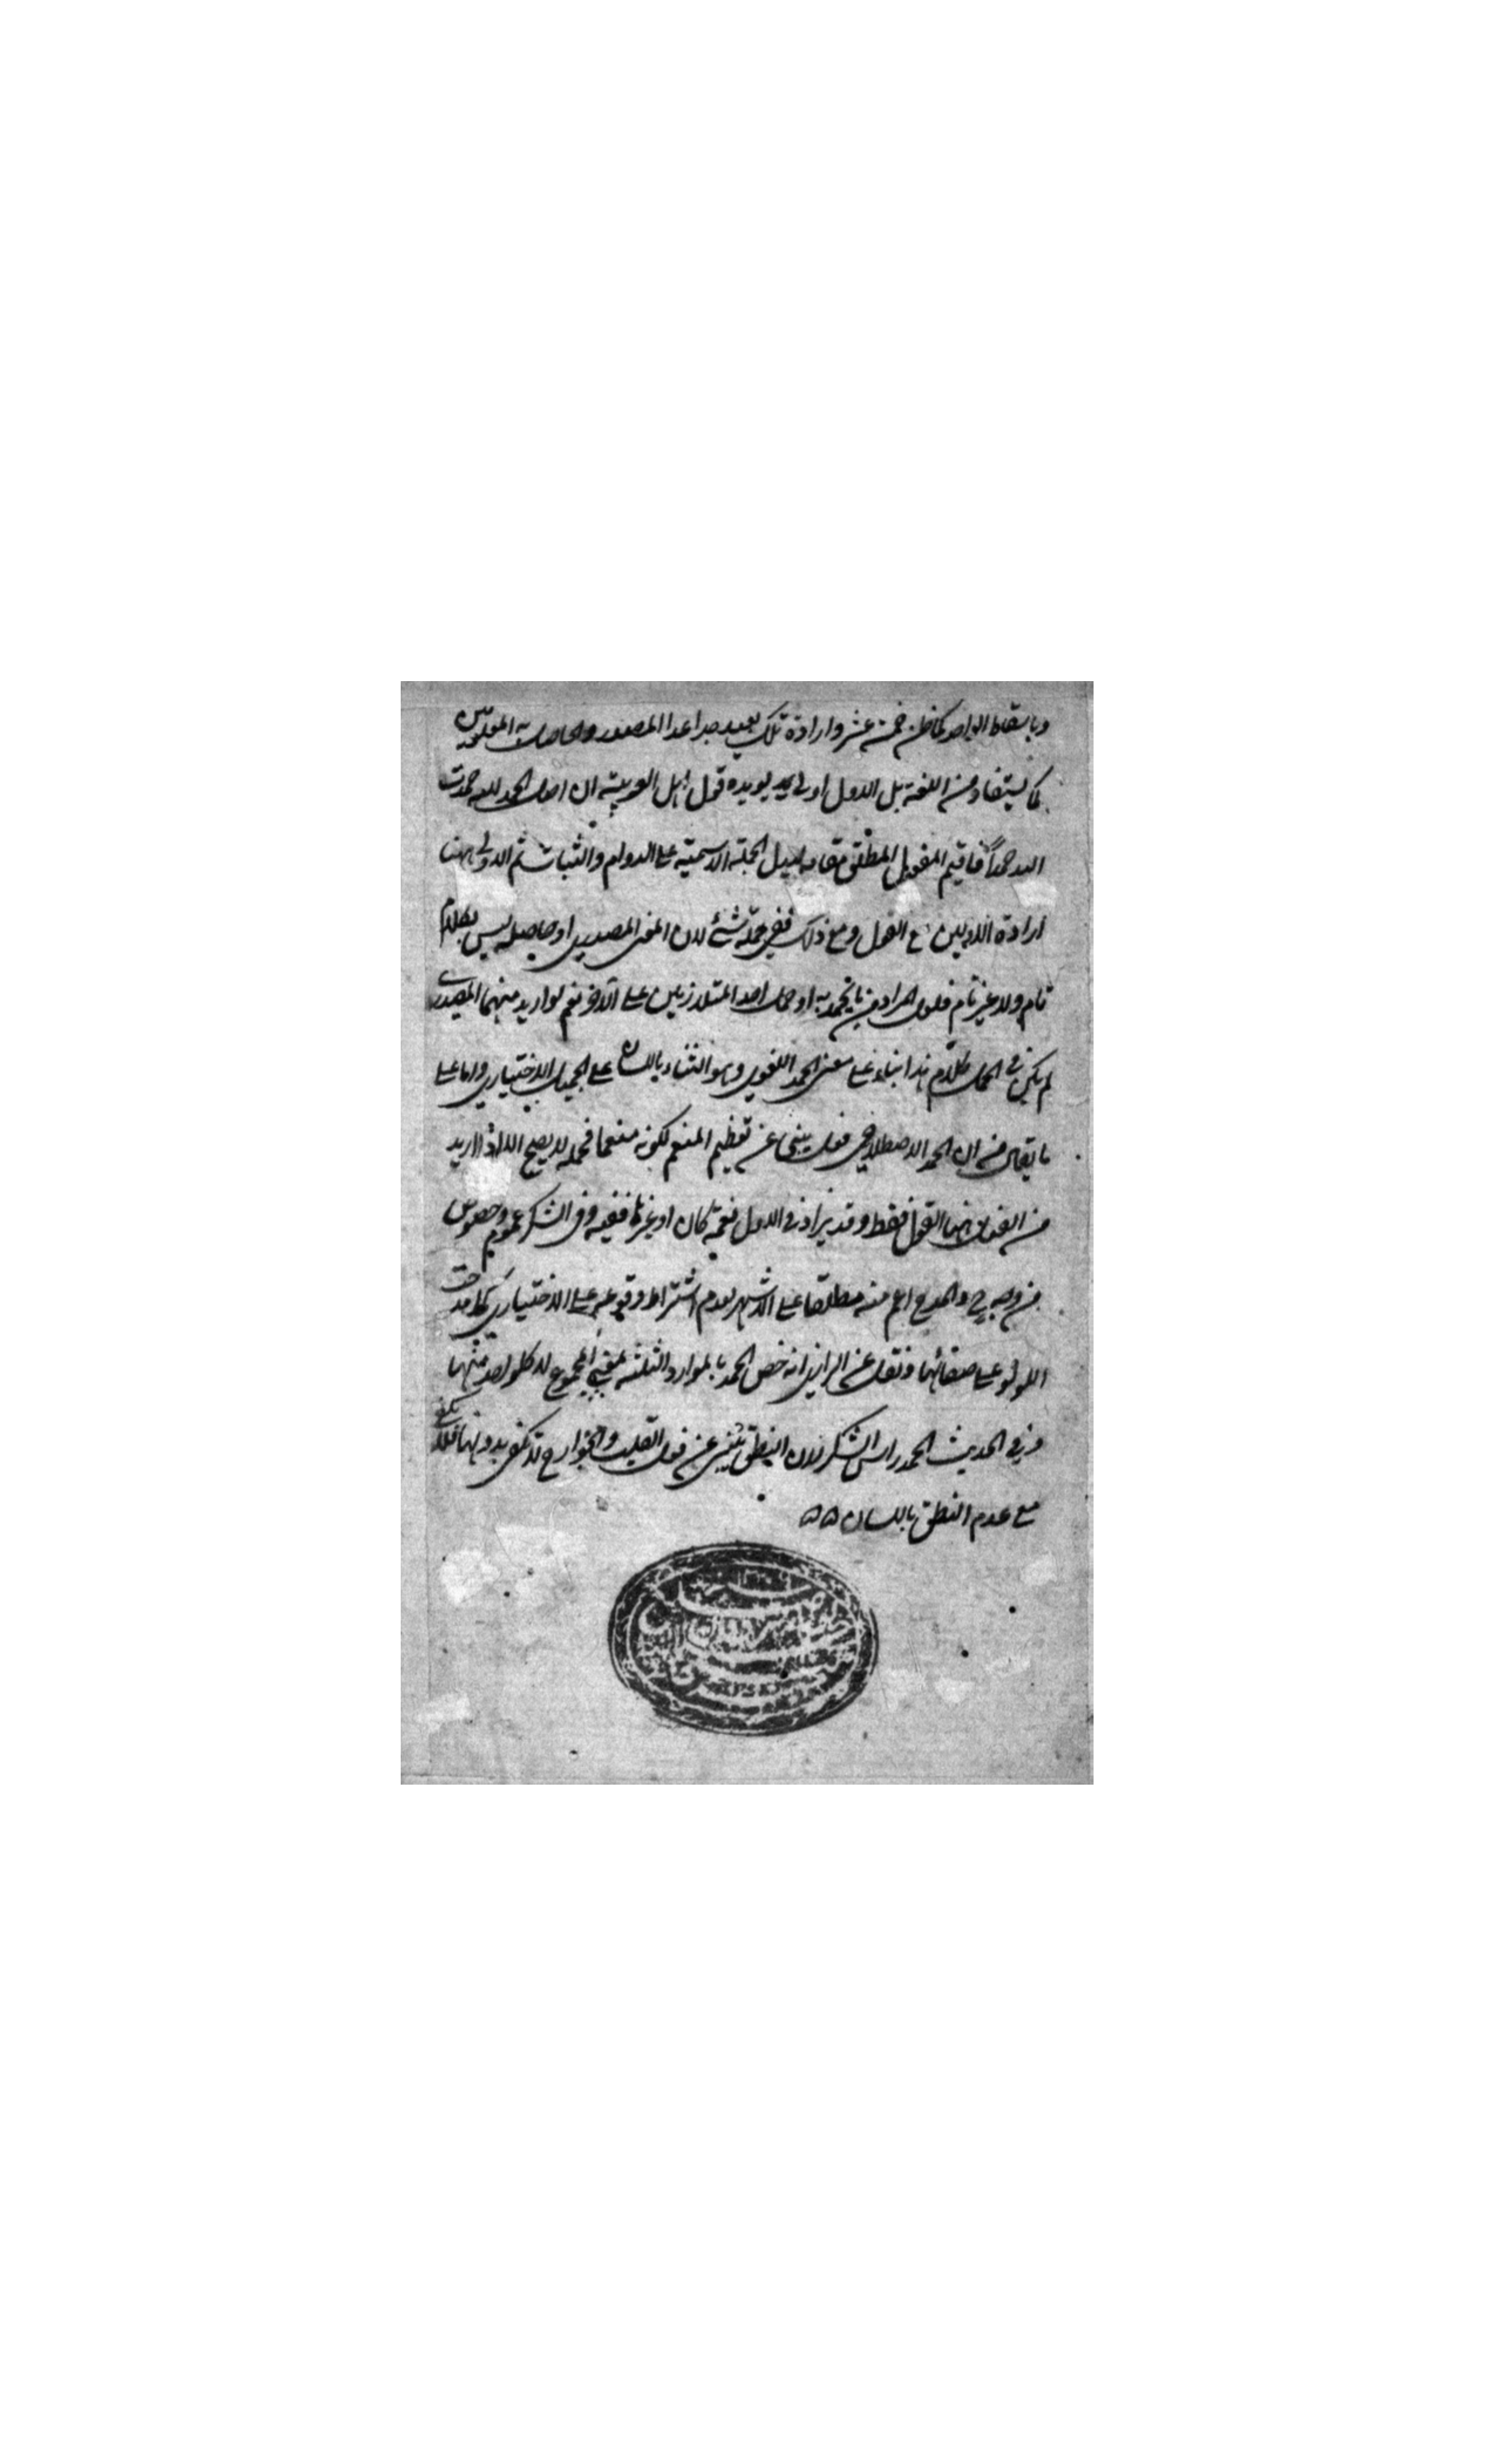 وباسقاط الواحد كما ظن خمسة عشر وارادة تلك بعيد جدا عدا المصدر والحاصل به المعلومين
كما يستفاد من اللغة بل الاول اولى يؤيده قول اهل العربية ان اصل الحمد لله حمدت
الله حمداً فاقيم المفعول المطلق مقامه ليدل الجملة الاسمية على الدوام والثبات ثم الاولى ههنا
ارادة الاولين مع القول ومع ذلك ففي حمله شئ لان المعنى المصدري او حاصله ليس بكلام
تام ولا غير تام فلعل المراد من بالحمد به او حمل احد المتلازمين على الآخر نعم لو اريد منهما المصدري
لم يكن في الحمل كلام هذا بناء على معنى الحمد اللغوي وهو الثناء باللسان على الجميل الاختياري واما على
ما يقال من ان الحمد الاصطلاحي فعل ينبئ عن تعظيم المنعم لكونه منعما فحمله لا يصح الا اذا اريد
من الفعل ههنا القول فقط وقد يزاد في الاول نعمة كان او غيرها ففيه وفي الشكر عموم وخصوص
من وجه ح والمدح اعم منه مطلقا على الاشهر لعدم اشتراط وقوعه على الاختياري كما مدحت
اللؤلؤ على صفائها ونقل عن الرازي انه خص الحمد بالموارد الثلثة بمعنى المجموع لا كل واحد منها
وفي الحديث الحمد رأس الشكر لان النطق ينبئ عن فعل القلب والجوارح قد تخفى بدونها فلا يكفى
مع عدم النطق باللسان